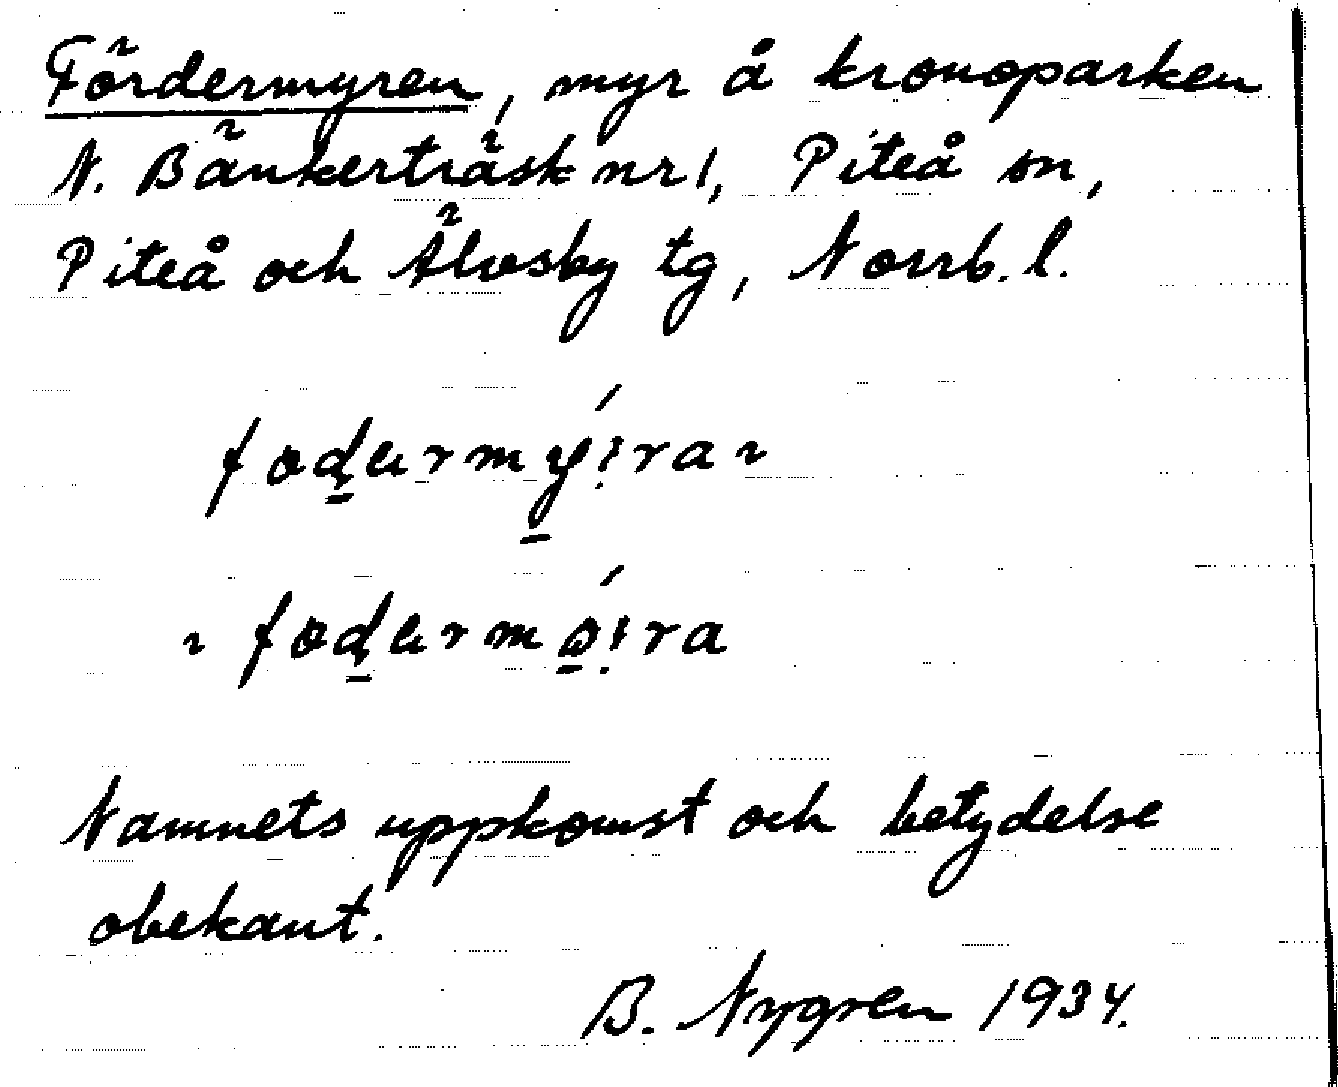 Fördermyren, myr å kronoparken
N. Bänkerträsk nr 1, Piteå sn,
Piteå och Älvsby tg, Norrb. l.
Namnets uppkomst och betydelse
obekant.
B. Nygren 1934.